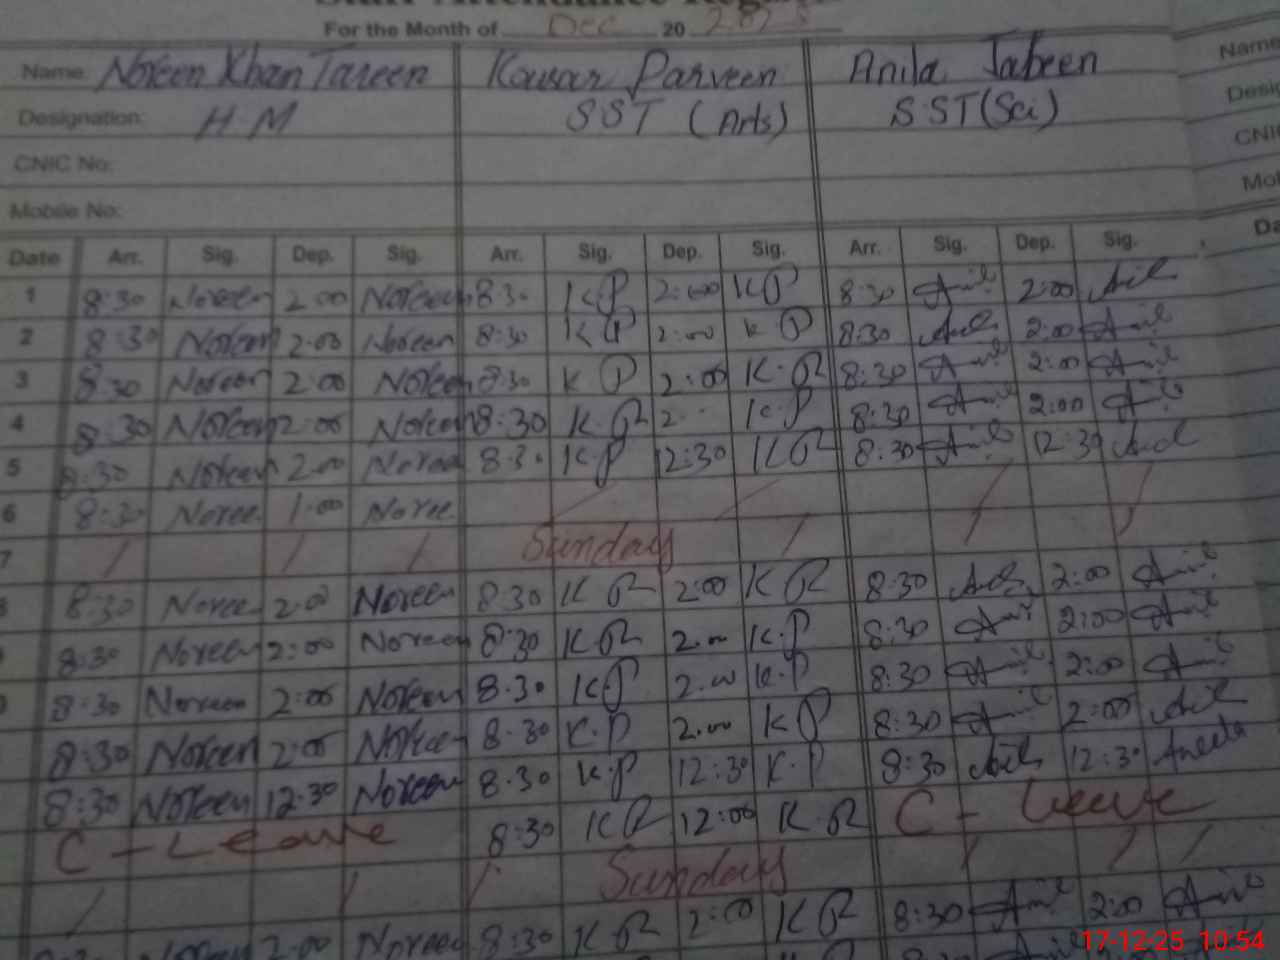 Staff Attendance Register
For the Month of Dec 20 2025
Name: Noreen Khan Tareen Kausar Parveen Anila Jabeen Name
Designation: H.M SST (Arts) S.ST(Sci) Desig
CNIC No: CNI
Mobile No: Mo
Date Arr. Sig. Dep. Sig. Arr. Sig. Dep. Sig. Arr. Sig. Dep. Sig. Da
1 8:30 Noreen 2:00 Noreen 8:30 K.P 2:00 KP 8:30 2:00
2 8:30 Noreen 2:00 Noreen 8:30 K P 2:00 K P 8:30 2:00
3 8:30 Noreen 2:00 Noreen 8:30 K P 2:00 K.P 8:30 2:00
4 8:30 Noreen 2:00 Noreen 8:30 K.P 2 K.P 8:30 2:00
5 8:30 Noreen 2:00 Noreen 8:30 K.P 12:30 KP 8:30 12:30
6 8:30 Noree 1:00 Noree
7 Sunday
8:30 Noree 2:00 Noreen 8:30 K P 2:00 K P 8:30 2:00
8:30 Noreen 2:00 Noreen 8:30 K P 2.00 K.P 8:30 2:00
8:30 Noreen 2:00 Noreen 8.30 K.P 2.00 K.P 8:30 2:00
8:30 Noreen 2:00 Noreen 8.30 K.P 2.00 K P 8:30 2:00
8:30 Noreen 12:30 Noreen 8.30 K.P 12:30 K.P 8:30 12:30 Aneela
C - Leave 8:30 K P 12:00 K.P C - Leave
Sunday
2:00 Noreen 8:30 K P 2:00 K P 8:30 2:00
17-12-25 10:54